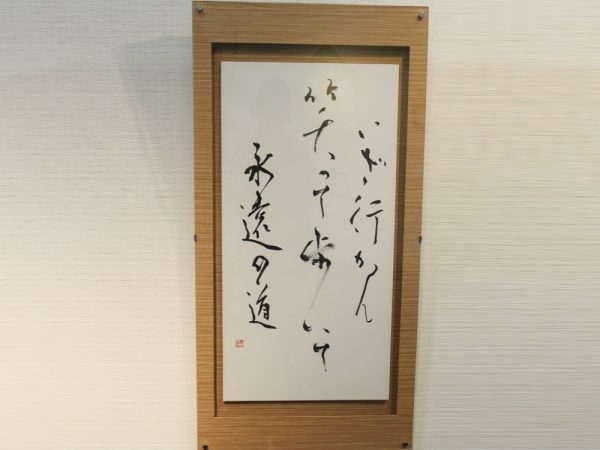 いざ行かん
笑って歩いて
永遠の道